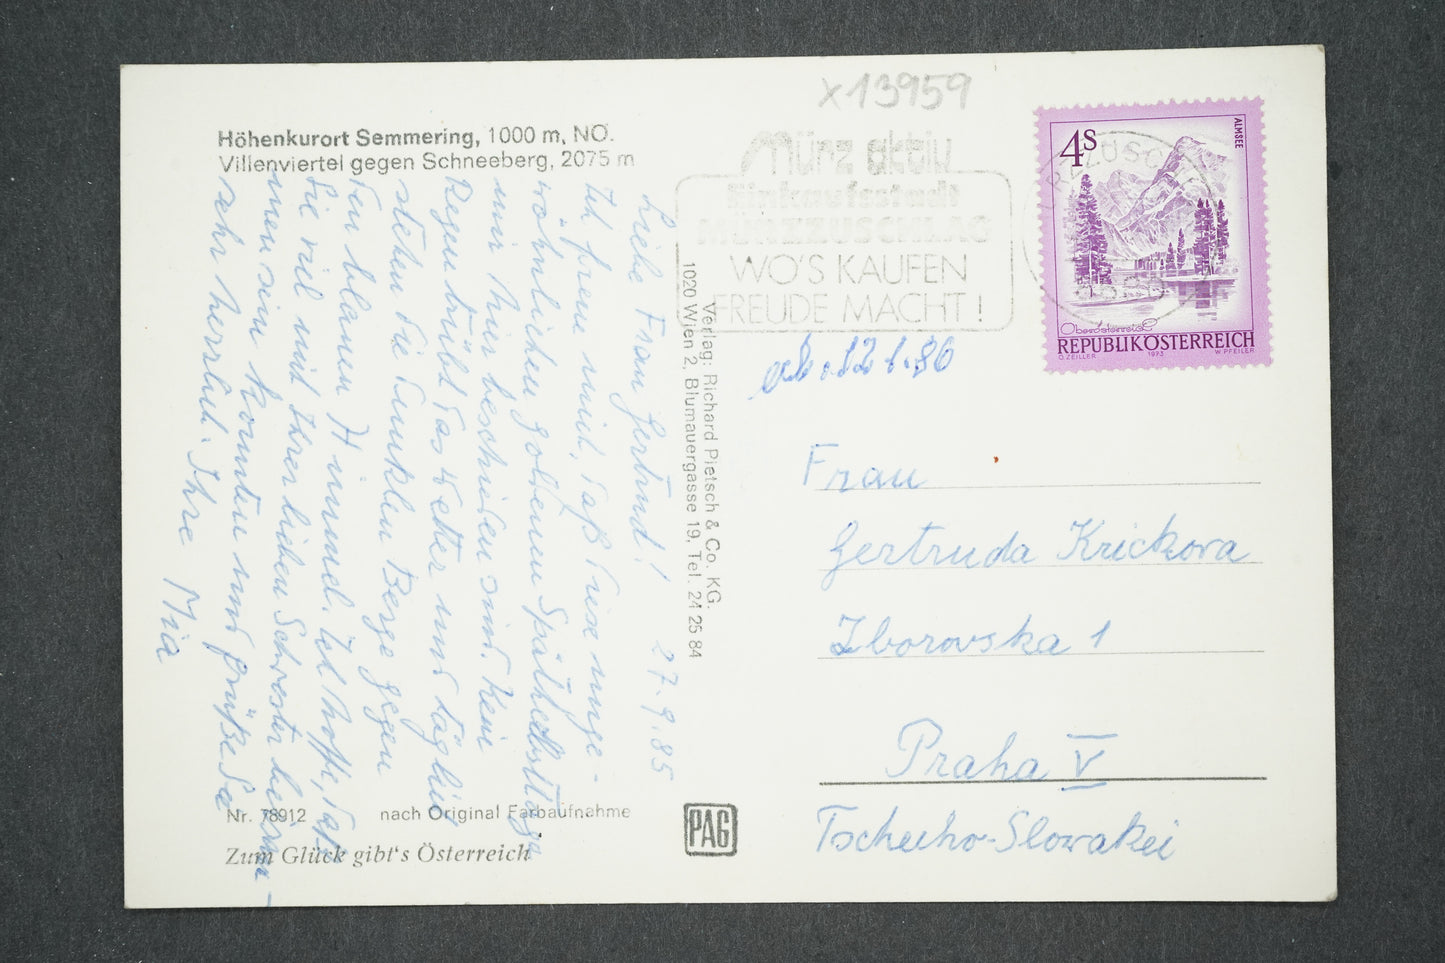 x13959
Höhenkurort Semmering, 1000 m, NÖ.
Villenviertel gegen Schneeberg, 2075 m
Liebe Frau Gertrud! 27.9.85
Ich freue mich, daß diese unge-
wöhnlichen goldenen Spätherbsttage
mir hier beschieden sind. Kein
Regen trübt das Wetter und täglich
stehen die dunklen Berge gegen
den blauen Himmel. Ich hoffe, daß
Sie viel mit Ihrer lieben Schwester
sein konnten und grüße Sie
sehr herzlich. Ihre Mia
Nr. 78912 nach Original Farbaufnahme
Zum Glück gibt's Österreich
Verlag: Richard Pietsch & Co. KG.
1020 Wien 2, Blumauergasse 19, Tel. 24 25 84
PAG
Mürz aktiv
Einkaufsstadt
MÜRZZUSCHLAG
WO'S KAUFEN
FREUDE MACHT!
4S
ALMSEE
Oberösterreich
REPUBLIK ÖSTERREICH
O. ZEILLER 1973 W. PFEILER
12 1.86
Frau
Gertruda Krickova
Zborovska 1
Praha V
Tschecho-Slowakei